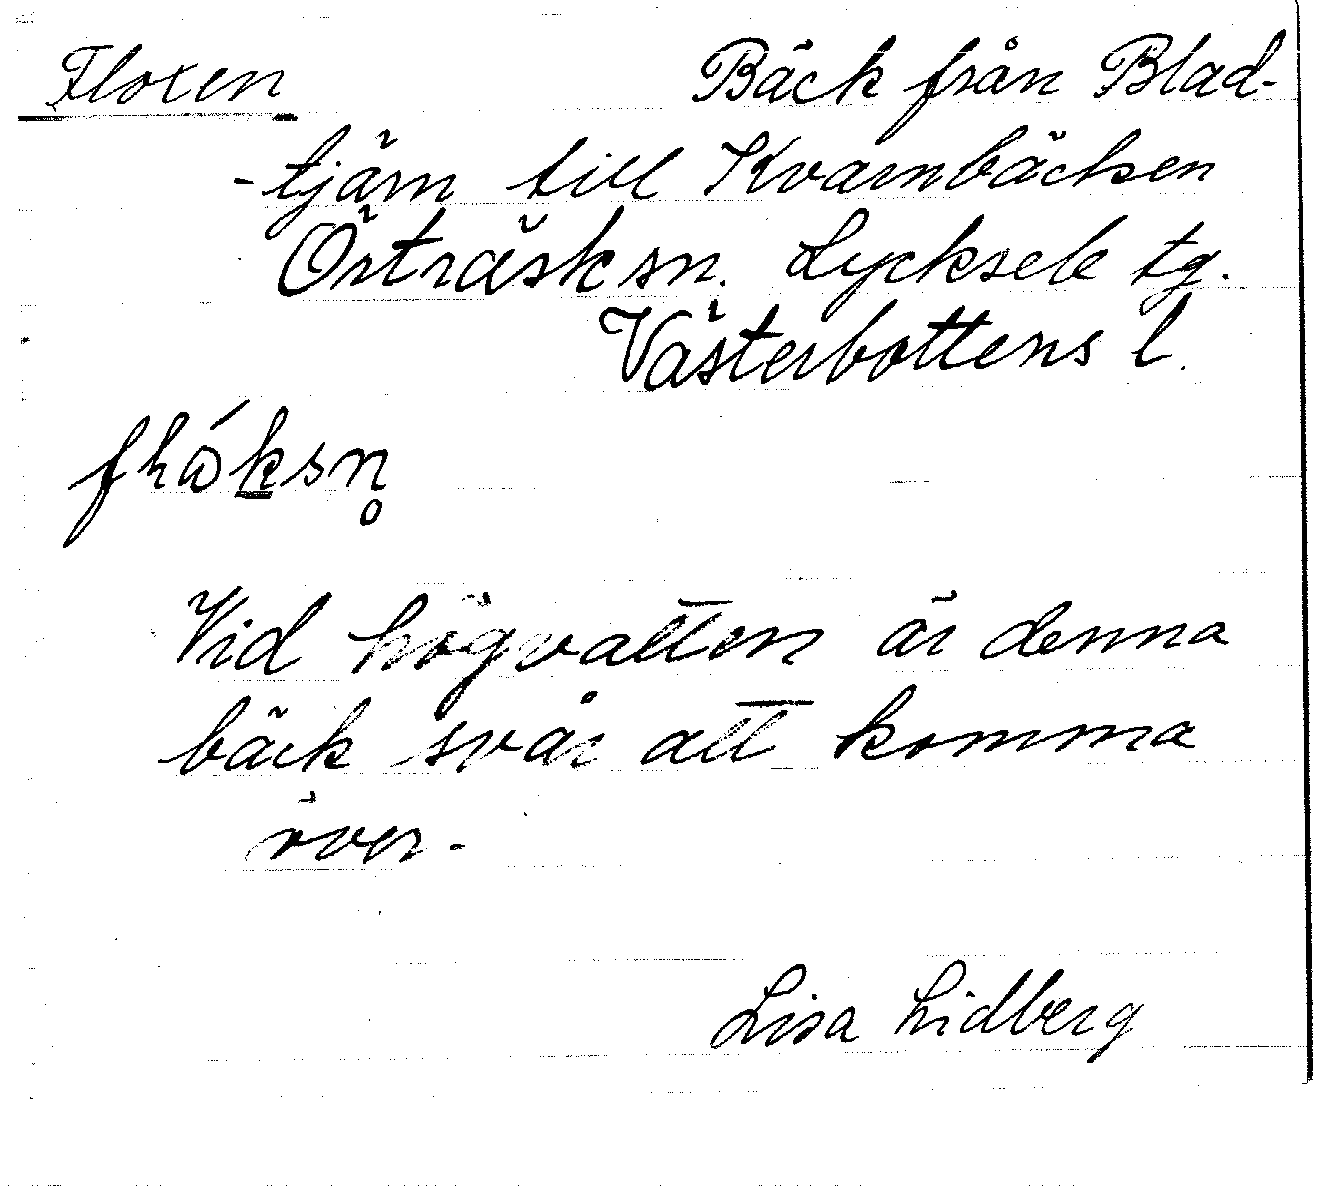 Floxen Bäck från Blad-
-tjärn till Kvarnbäcksen
Örträsk sn. Lycksele tg.
Västerbottens l.
Vid högvatten är denna
bäck svår att komma
över.
Lisa Lidberg